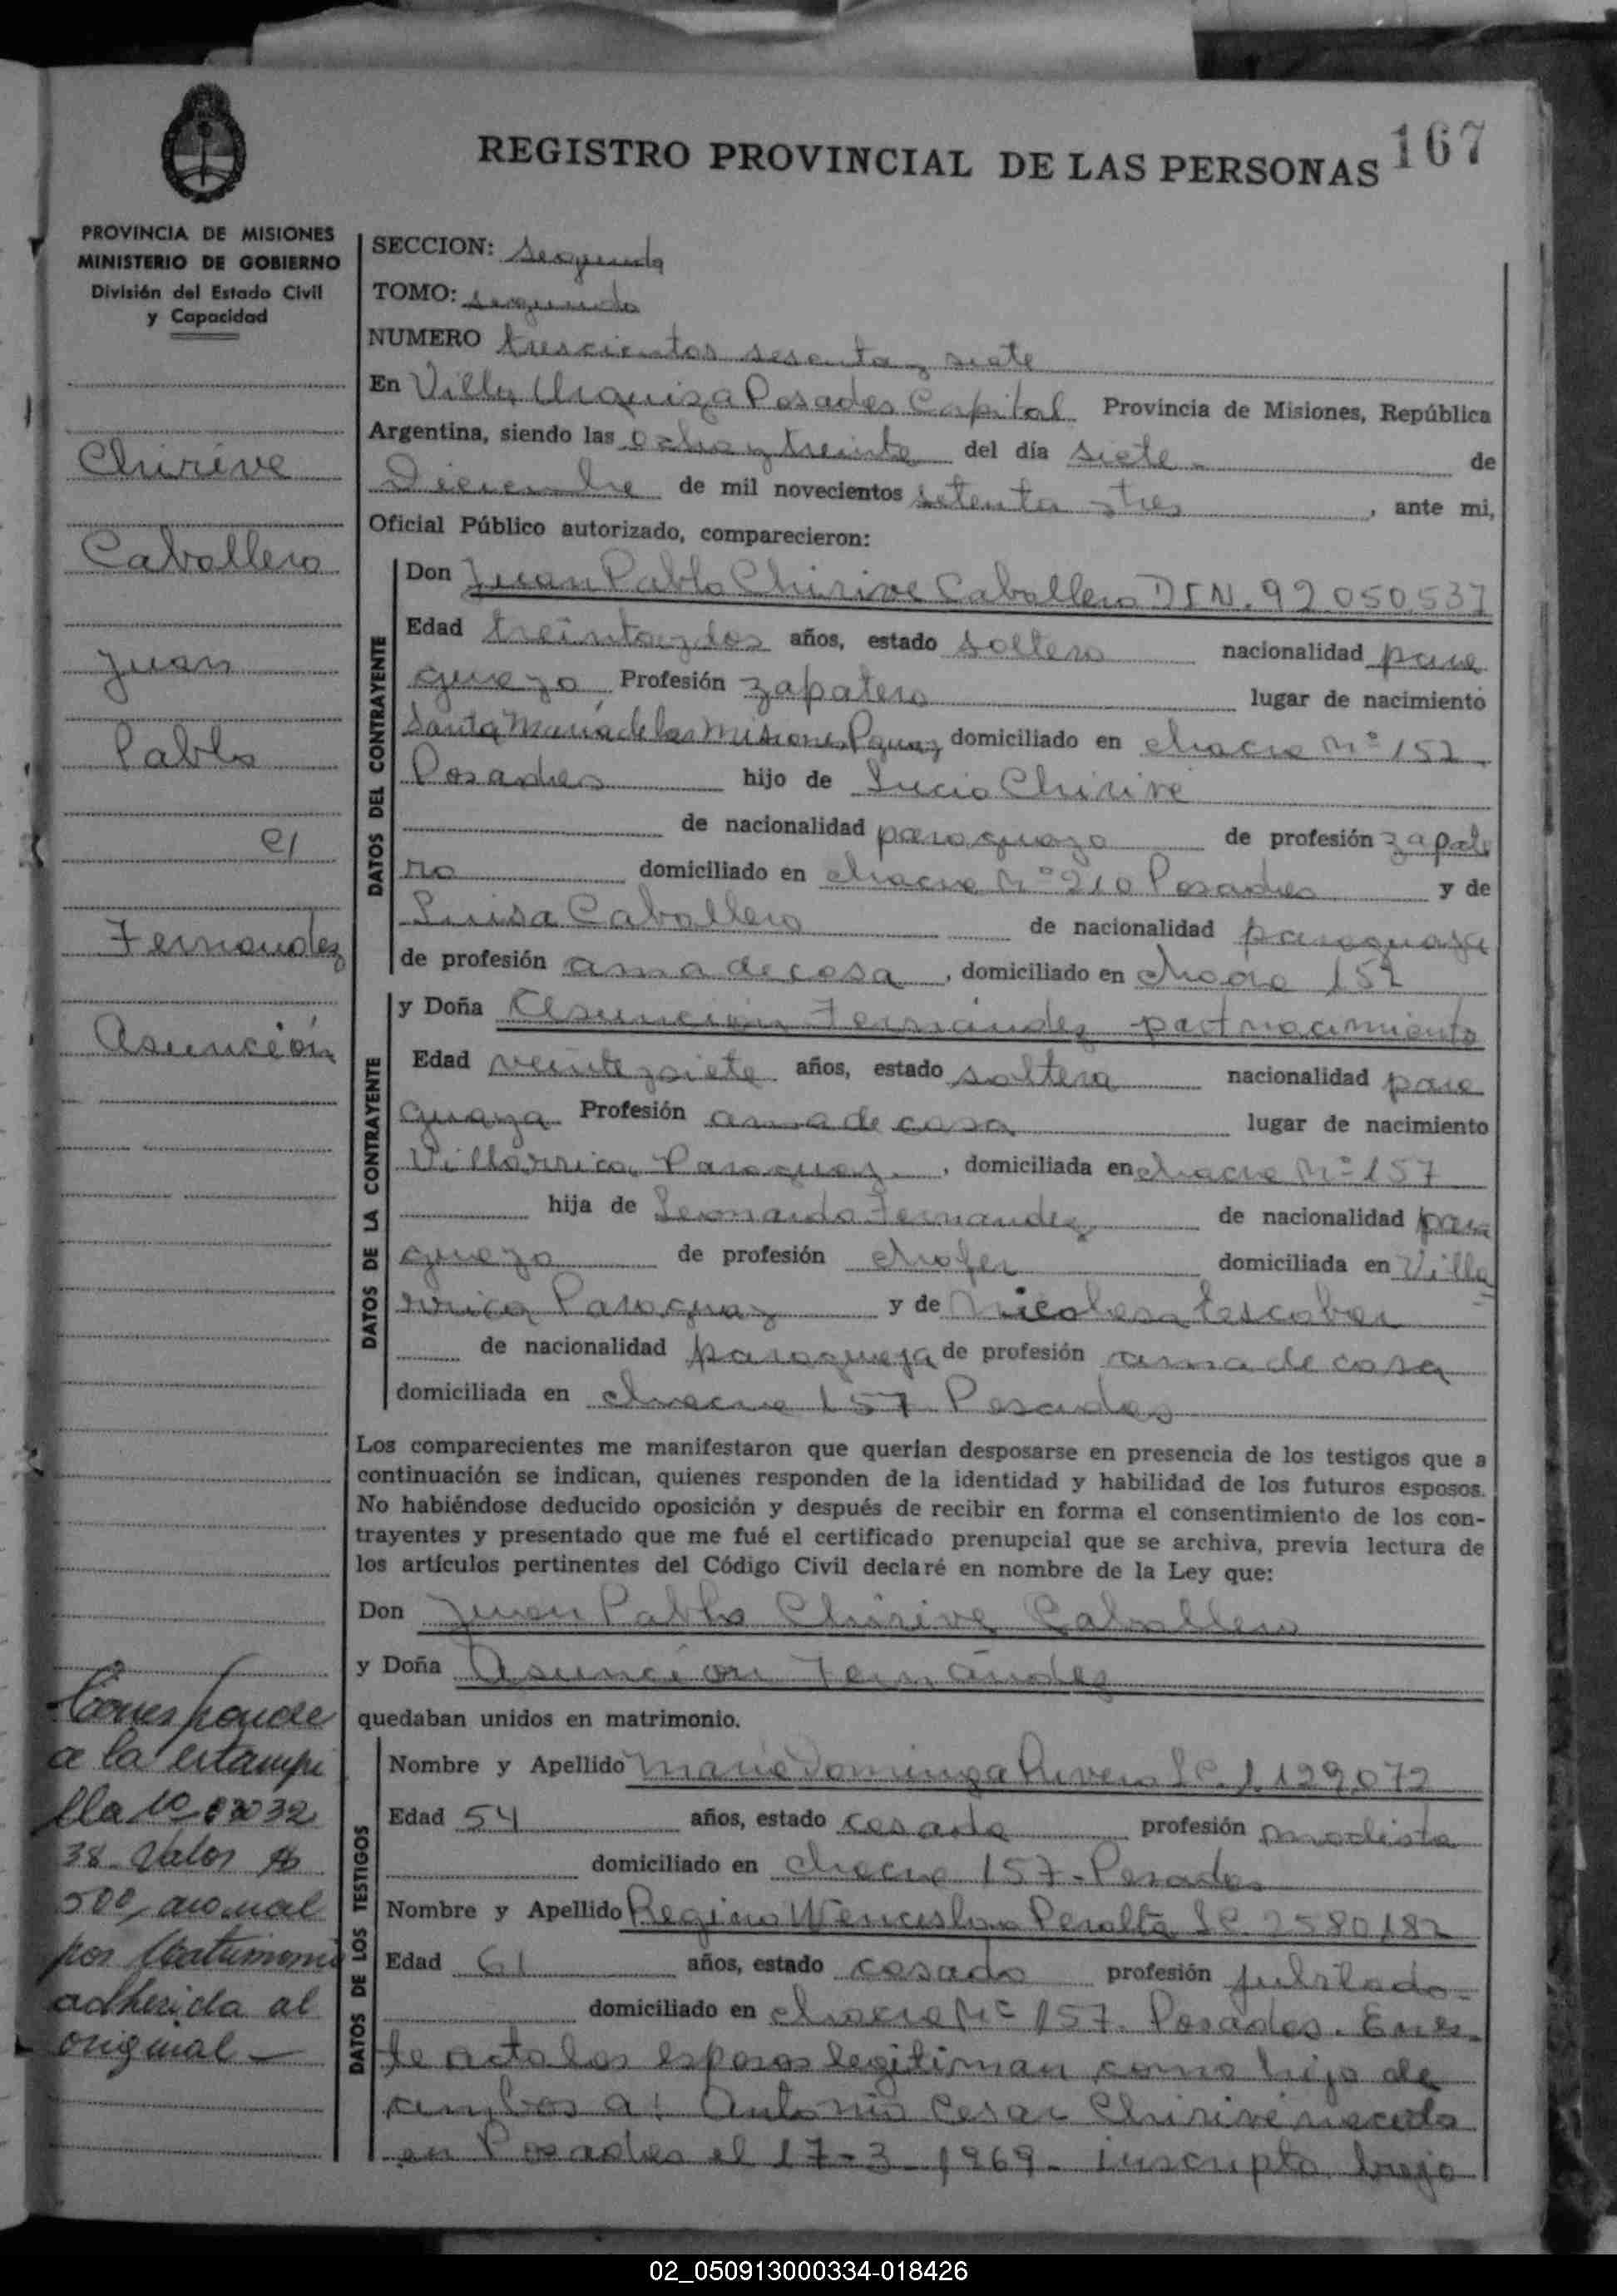 REGISTRO PROVINCIAL DE LAS PERSONAS 167
PROVINCIA DE MISIONES
MINISTERIO DE GOBIERNO
División del Estado Civil
y Capacidad
Chirive
Caballero
Juan
Pablo
c/
Fernandez
Asunción
Corresponde
a la estampi
lla Nº 03032
38 Valor $
500, mo.nal
por Matrimonio
adherida al
original
SECCION: Segunda
TOMO: segundo
NUMERO trescientos sesenta y siete
En Villa Urquiza Posadas Capital Provincia de Misiones, República
Argentina, siendo las ocho y treinta del día siete de
Diciembre de mil novecientos setenta y tres, ante mi,
Oficial Público autorizado, comparecieron:
DATOS DEL CONTRAYENTE
Don Juan Pablo Chirive Caballero DIN. 92.050.537
Edad treinta y dos años, estado soltero nacionalidad para
guayo Profesión zapatero lugar de nacimiento
Santa María de las Misiones Pguay domiciliado en chacra Nº 157
Posadas hijo de Lucio Chirivé
de nacionalidad paraguayo de profesión zapate
ro domiciliado en chacra Nº 210 Posadas y de
Luisa Caballero de nacionalidad paraguaya
de profesión ama de casa, domiciliado en chacra 157
DATOS DE LA CONTRAYENTE
y Doña Asunción Fernández part nacimiento
Edad veinte y siete años, estado soltera nacionalidad para
guaya Profesión ama de casa lugar de nacimiento
Villarrica Paraguay, domiciliada en chacra Nº 157
hija de Leonardo Fernandez de nacionalidad para
guayo de profesión chofer domiciliada en Villa
rrica Paraguay y de Nicolasa Escobar
de nacionalidad paraguaya de profesión ama de casa
domiciliada en chacra 157 Posadas
Los comparecientes me manifestaron que querían desposarse en presencia de los testigos que a
continuación se indican, quienes responden de la identidad y habilidad de los futuros esposos.
No habiéndose deducido oposición y después de recibir en forma el consentimiento de los con-
trayentes y presentado que me fué el certificado prenupcial que se archiva, previa lectura de
los artículos pertinentes del Código Civil declaré en nombre de la Ley que:
Don Juan Pablo Chirive Caballero
y Doña Asunción Fernández
quedaban unidos en matrimonio.
DATOS DE LOS TESTIGOS
Nombre y Apellido María Dominga Rivero LC. 1.129.072
Edad 54 años, estado casada profesión modista
domiciliado en chacra 157 - Posadas
Nombre y Apellido Regino Wenceslao Peralta LE. 2580.182
Edad 61 años, estado casado profesión jubilado
domiciliado en chacra Nº 157. Posadas. En es
te acto los esposos legitiman como hijo de
ambos a: Antonio Cesar Chirive nacido
en Posadas el 17-3-1969 - inscripto bajo
02_050913000334-018426